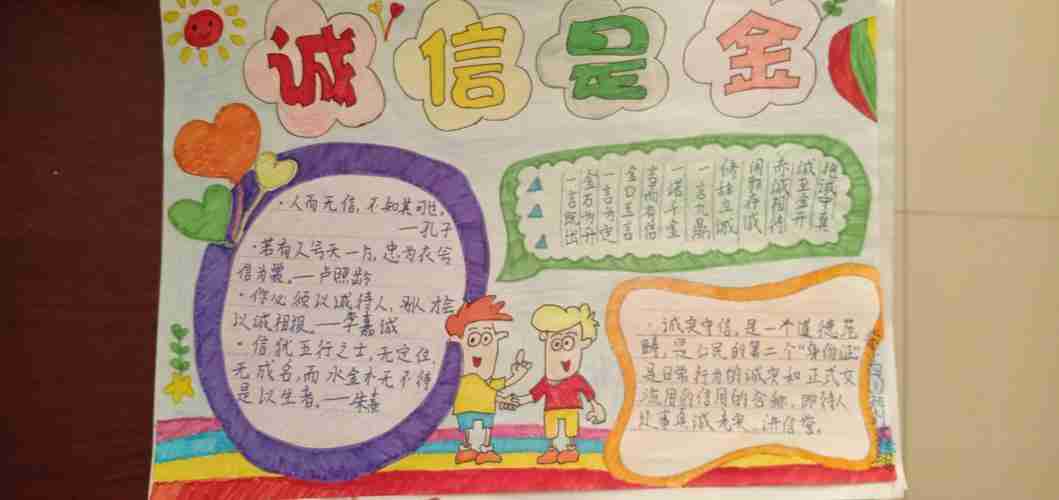 诚信是金
·人而无信,不知其可也。
—孔子
·若有人兮天一方,忠为衣兮
信为裳。—卢照龄
·你必须以诚待人,别人才会
以诚相报。—李嘉诚
·信犹五行之土,无定位,
无成名,而水金木无不待
是以生者。—朱熹
抱诚守真
诚至金开
赤诚相待
闲邪存诚
修辞立诚
一言九鼎
一诺千金
言而有信
金口玉言
一言为定
金石为开
一言既出
·诚实守信,是一个道德范
畴,是公民的第二个“身份证”
是日常行为的诚实和正式交
流用的信用的合称,即待人
处事真诚老实、讲信誉。